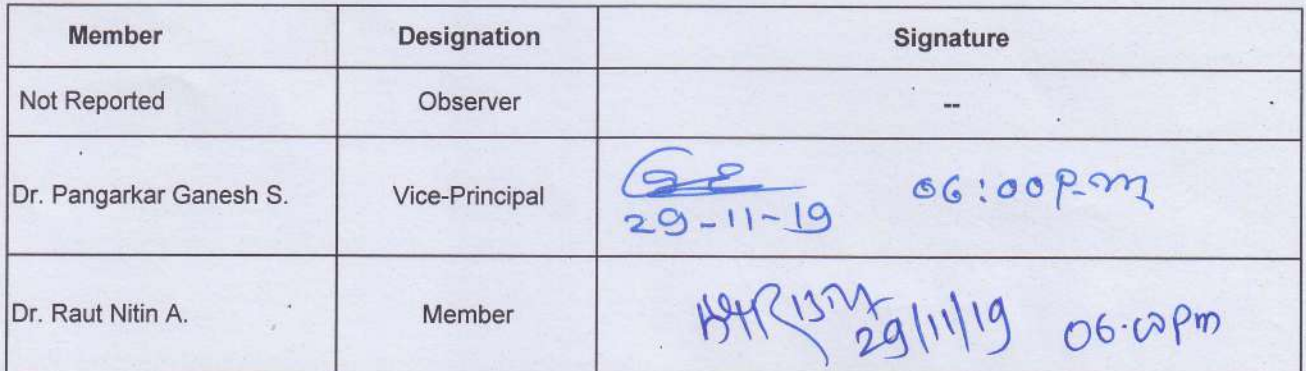 Member Designation Signature
Not Reported Observer --
Dr. Pangarkar Ganesh S. Vice-Principal 29-11-19 06:00 P.m
Dr. Raut Nitin A. Member 29/11/19 06.00 pm